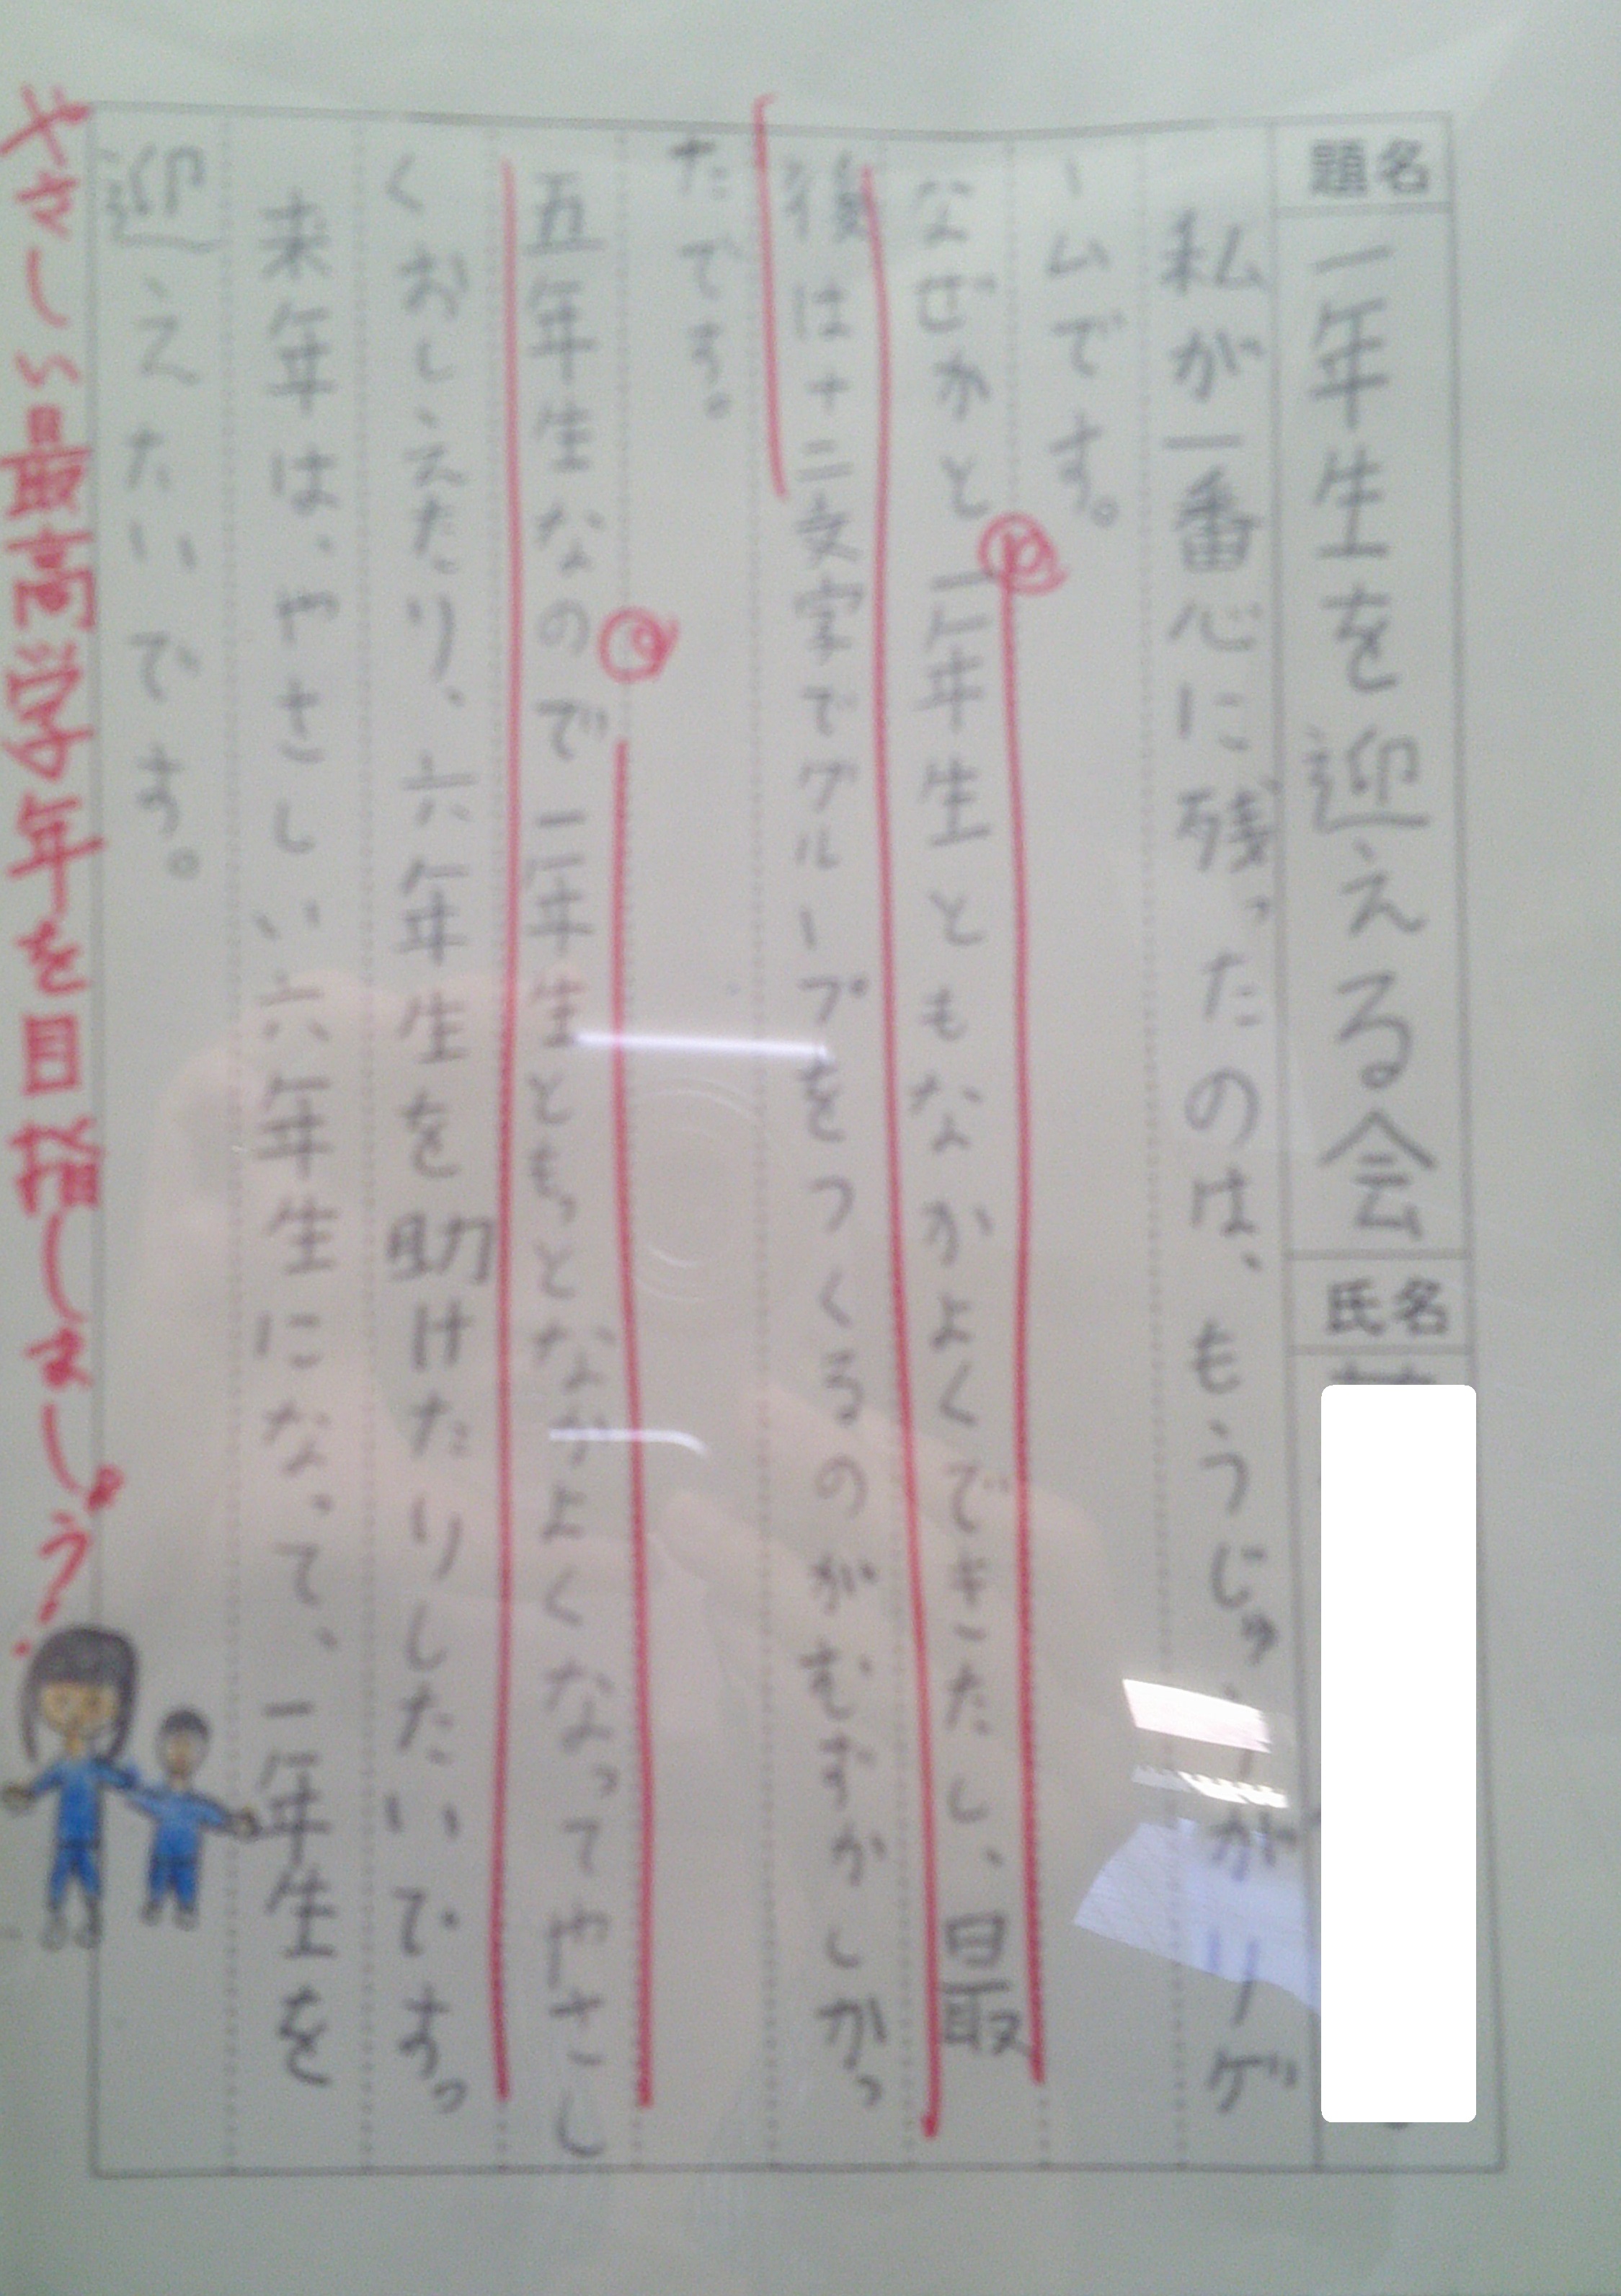 題名
一年生を迎える会
氏名
私が一番心に残ったのは、もうじゅうがりゲ
ームです。
なぜかと一年生ともなかよくできたし、最
後は十二文字でグループをつくるのがむずかしかっ
たです。
五年生なので一年生ともっとなかよくなってやさし
くおしえたり、六年生を助けたりしたいです。
来年は、やさしい六年生になって、一年生を
迎えたいです。
やさしい最高学年を目指しましょう!